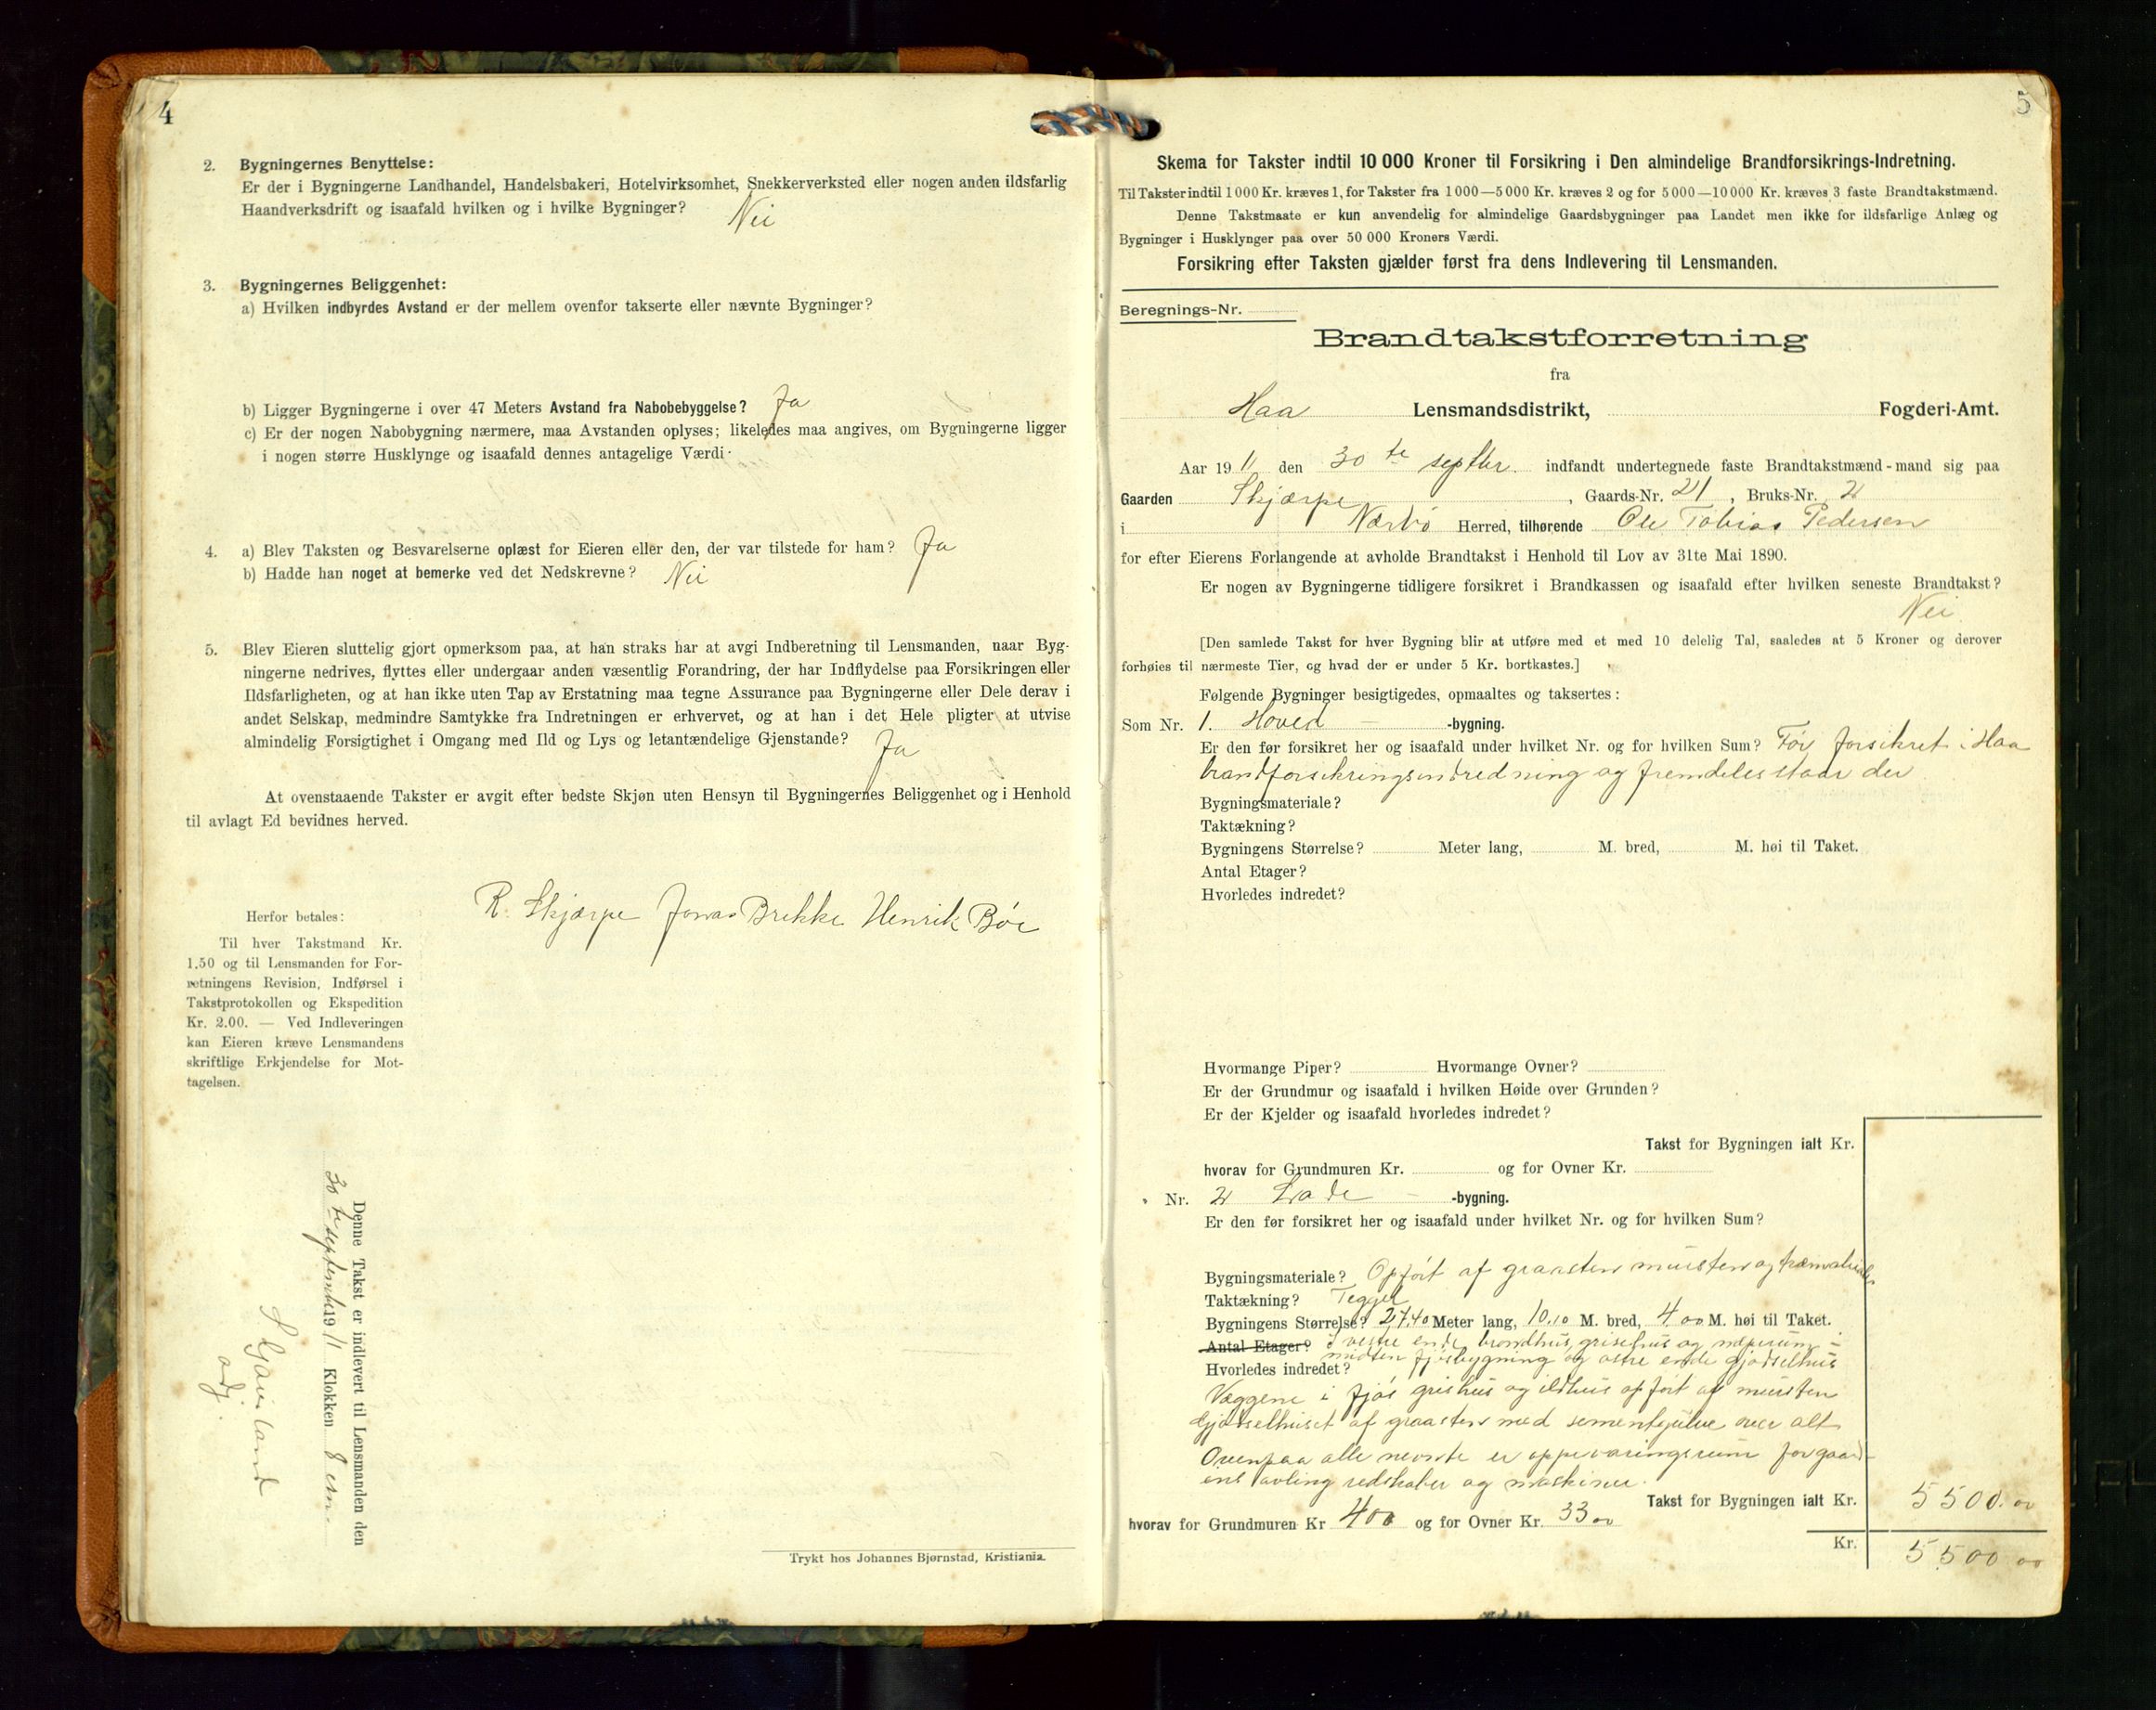 4
2. Bygningernes Benyttelse:
Er der i Bygningerne Landhandel, Handelsbakeri, Hotelvirksomhet, Snekkerverksted eller nogen anden ildsfarlig
Haandverksdrift og isaafald hvilken og i hvilke Bygninger? Nei
3. Bygningernes Beliggenhet:
a) Hvilken indbyrdes Avstand er der mellem ovenfor takserte eller nævnte Bygninger?
b) Ligger Bygningerne i over 47 Meters Avstand fra Nabobebyggelse? Ja
c) Er der nogen Nabobygning nærmere, maa Avstanden oplyses; likeledes maa angives, om Bygningerne ligger
i nogen større Husklynge og isaafald dennes antagelige Værdi.
4. a) Blev Taksten og Besvarelserne oplæst for Eieren eller den, der var tilstede for ham? Ja
b) Hadde han noget at bemerke ved det Nedskrevne? Nei
5. Blev Eieren sluttelig gjort opmerksom paa, at han straks har at avgi Indberetning til Lensmanden, naar Byg-
ningerne nedrives, flyttes eller undergaar anden væsentlig Forandring, der har Indflydelse paa Forsikringen eller
Ildsfarligheten, og at han ikke uten Tap av Erstatning maa tegne Assurance paa Bygningerne eller Dele derav i
andet Selskap, medmindre Samtykke fra Indretningen er erhvervet, og at han i det Hele pligter at utvise
almindelig Forsigtighet i Omgang med Ild og Lys og letantændelige Gjenstande? Ja
At ovenstaaende Takster er avgit efter bedste Skjøn uten Hensyn til Bygningernes Beliggenhet og i Henhold
til avlagt Ed bevidnes herved.
R. Skjærpe Jonas Brekke Henrik Bøe
Herfor betales:
Til hver Takstmand Kr.
1.50 og til Lensmanden for For-
retningens Revision, Indførsel i
Takstprotokollen og Ekspedition
Kr. 2.00. — Ved Indleveringen
kan Eieren kræve Lensmandens
skriftlige Erkjendelse for Mot-
tagelsen.
Denne Takst er indlevert til Lensmanden den
30te september 1911 Klokken 8 em
Trykt hos Johannes Bjørnstad, Kristiania.
5
Skema for Takster indtil 10 000 Kroner til Forsikring i Den almindelige Brandforsikrings-Indretning.
Til Takster indtil 1000 Kr. kræves 1, for Takster fra 1000—5000 Kr. kræves 2 og for 5000—10000 Kr. kræves 3 faste Brandtakstmænd.
Denne Takstmaate er kun anvendelig for almindelige Gaardsbygninger paa Landet men ikke for ildsfarlige Anlæg og
Bygninger i Husklynger paa over 50 000 Kroners Værdi.
Forsikring efter Taksten gjælder først fra dens Indlevering til Lensmanden.
Beregnings-Nr.
Brandtakstforretning
fra
Haa Lensmandsdistrikt, Fogderi-Amt.
Aar 1911 den 30te septbr. indfandt undertegnede faste Brandtakstmænd-mand sig paa
Gaarden Skjærpe, Gaards-Nr. 21, Bruks-Nr. 2
i Nærbø Herred, tilhørende Ole Tobias Pedersen
for efter Eierens Forlangende at avholde Brandtakst i Henhold til Lov av 31te Mai 1890.
Er nogen av Bygningerne tidligere forsikret i Brandkassen og isaafald efter hvilken seneste Brandtakst?
Nei
[Den samlede Takst for hver Bygning blir at utføre med et med 10 delelig Tal, saaledes at 5 Kroner og derover
forhøies til nærmeste Tier, og hvad der er under 5 Kr. bortkastes.]
Følgende Bygninger besigtigedes, opmaaltes og taksertes:
Som Nr. 1. Hoved -bygning.
Er den før forsikret her og isaafald under hvilket Nr. og for hvilken Sum? Før forsikret i Haa
brandforsikringsindredning og fremdeles staar der
Bygningsmateriale?
Taktækning?
Bygningens Størrelse? Meter lang, M. bred, M. høi til Taket.
Antal Etager?
Hvorledes indredet?
Hvormange Piper? Hvormange Ovner?
Er der Grundmur og isaafald i hvilken Høide over Grunden?
Er der Kjelder og isaafald hvorledes indredet?
Takst for Bygningen ialt Kr.
hvorav for Grundmuren Kr. og for Ovner Kr.
Nr. 2 Lade -bygning.
Er den før forsikret her og isaafald under hvilket Nr. og for hvilken Sum?
Bygningsmateriale? Opført af graasten mursten og
Taktækning? Teggel
Bygningens Størrelse? 27.40 Meter lang, 10.10 M. bred, 4.00 M. høi til Taket.
Antal Etager? I vestre ende brondhus, grisehus og næperum i
midten fjøsbygning og østre ende gjødselhus
Hvorledes indredet?
Væggene i fjøs grishus og ildhus opført af mursten
Gjødselhuset af graasten med sementgulve over alt
Ovenpaa alle nevnte er oppevaringsrum for gaard-
ens avling redskaber og maskiner.
Takst for Bygningen ialt Kr. 5500.00
hvorav for Grundmuren Kr 400 og for Ovner Kr. 33 00
Kr. 5500 00